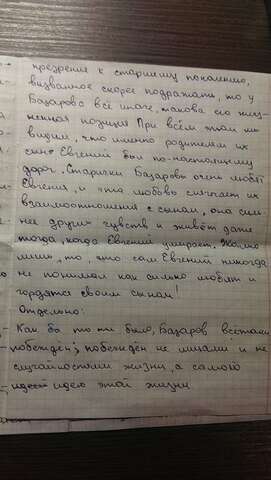 презрения к старшему поколению,
вызванное скорее подражать, то у
Базарова всё иначе, такова его жиз-
ненная позиция. При всём этом мы
видим, что именно родителям их
сын Евгений был по-настоящему
дорог. Старички Базаровы очень любят
Евгения, и эта любовь смягчает их
взаимоотношения с сыном, она силь-
нее других чувств и живёт даже
тогда, когда Евгений умирает. Жалко
лишь, то, что сам Евгений никогда
не понимал как сильно любят и
гордятся своим сыном!
Отдельно:
Как бы то ни было, Базаров всё таки
побеждён; побеждён не лицами и не
случайностями жизни, а самого
идеей этой жизни